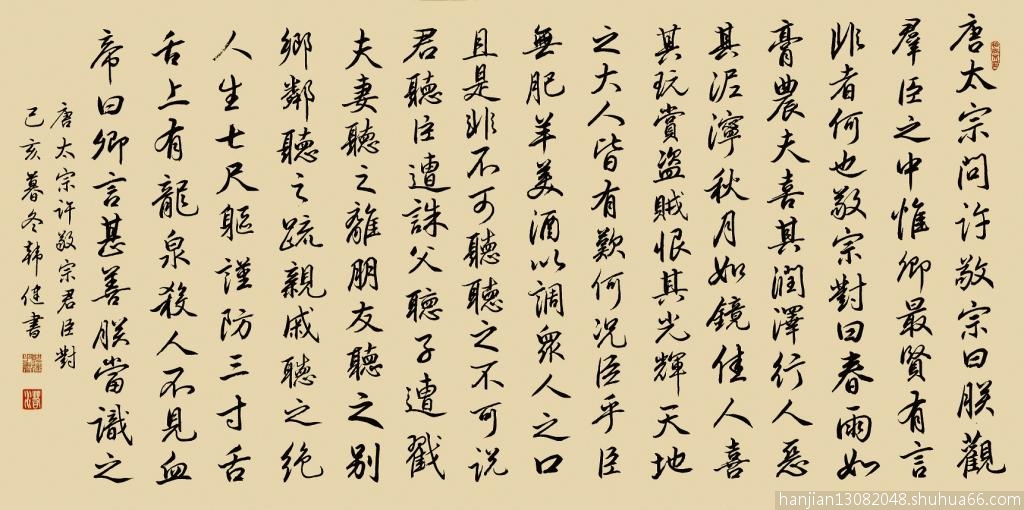 唐太宗問許敬宗曰朕觀
羣臣之中惟卿最賢有言
非者何也敬宗對曰春雨如
膏農夫喜其潤澤行人惡
其泥濘秋月如鏡佳人喜
其玩賞盜賊恨其光輝天地
之大人皆有歎何況臣乎臣
無肥羊美酒以調衆人之口
且是非不可聽聽之不可説
君聽臣遭誅父聽子遭戮
夫妻聽之離朋友聽之别
鄉鄰聽之疏親戚聽之絶
人生七尺軀謹防三寸舌
舌上有龍泉殺人不見血
帝曰卿言甚善朕當識之
唐太宗許敬宗君臣對
己亥暮冬韩健書
hanjian13082048.shuhua66.com